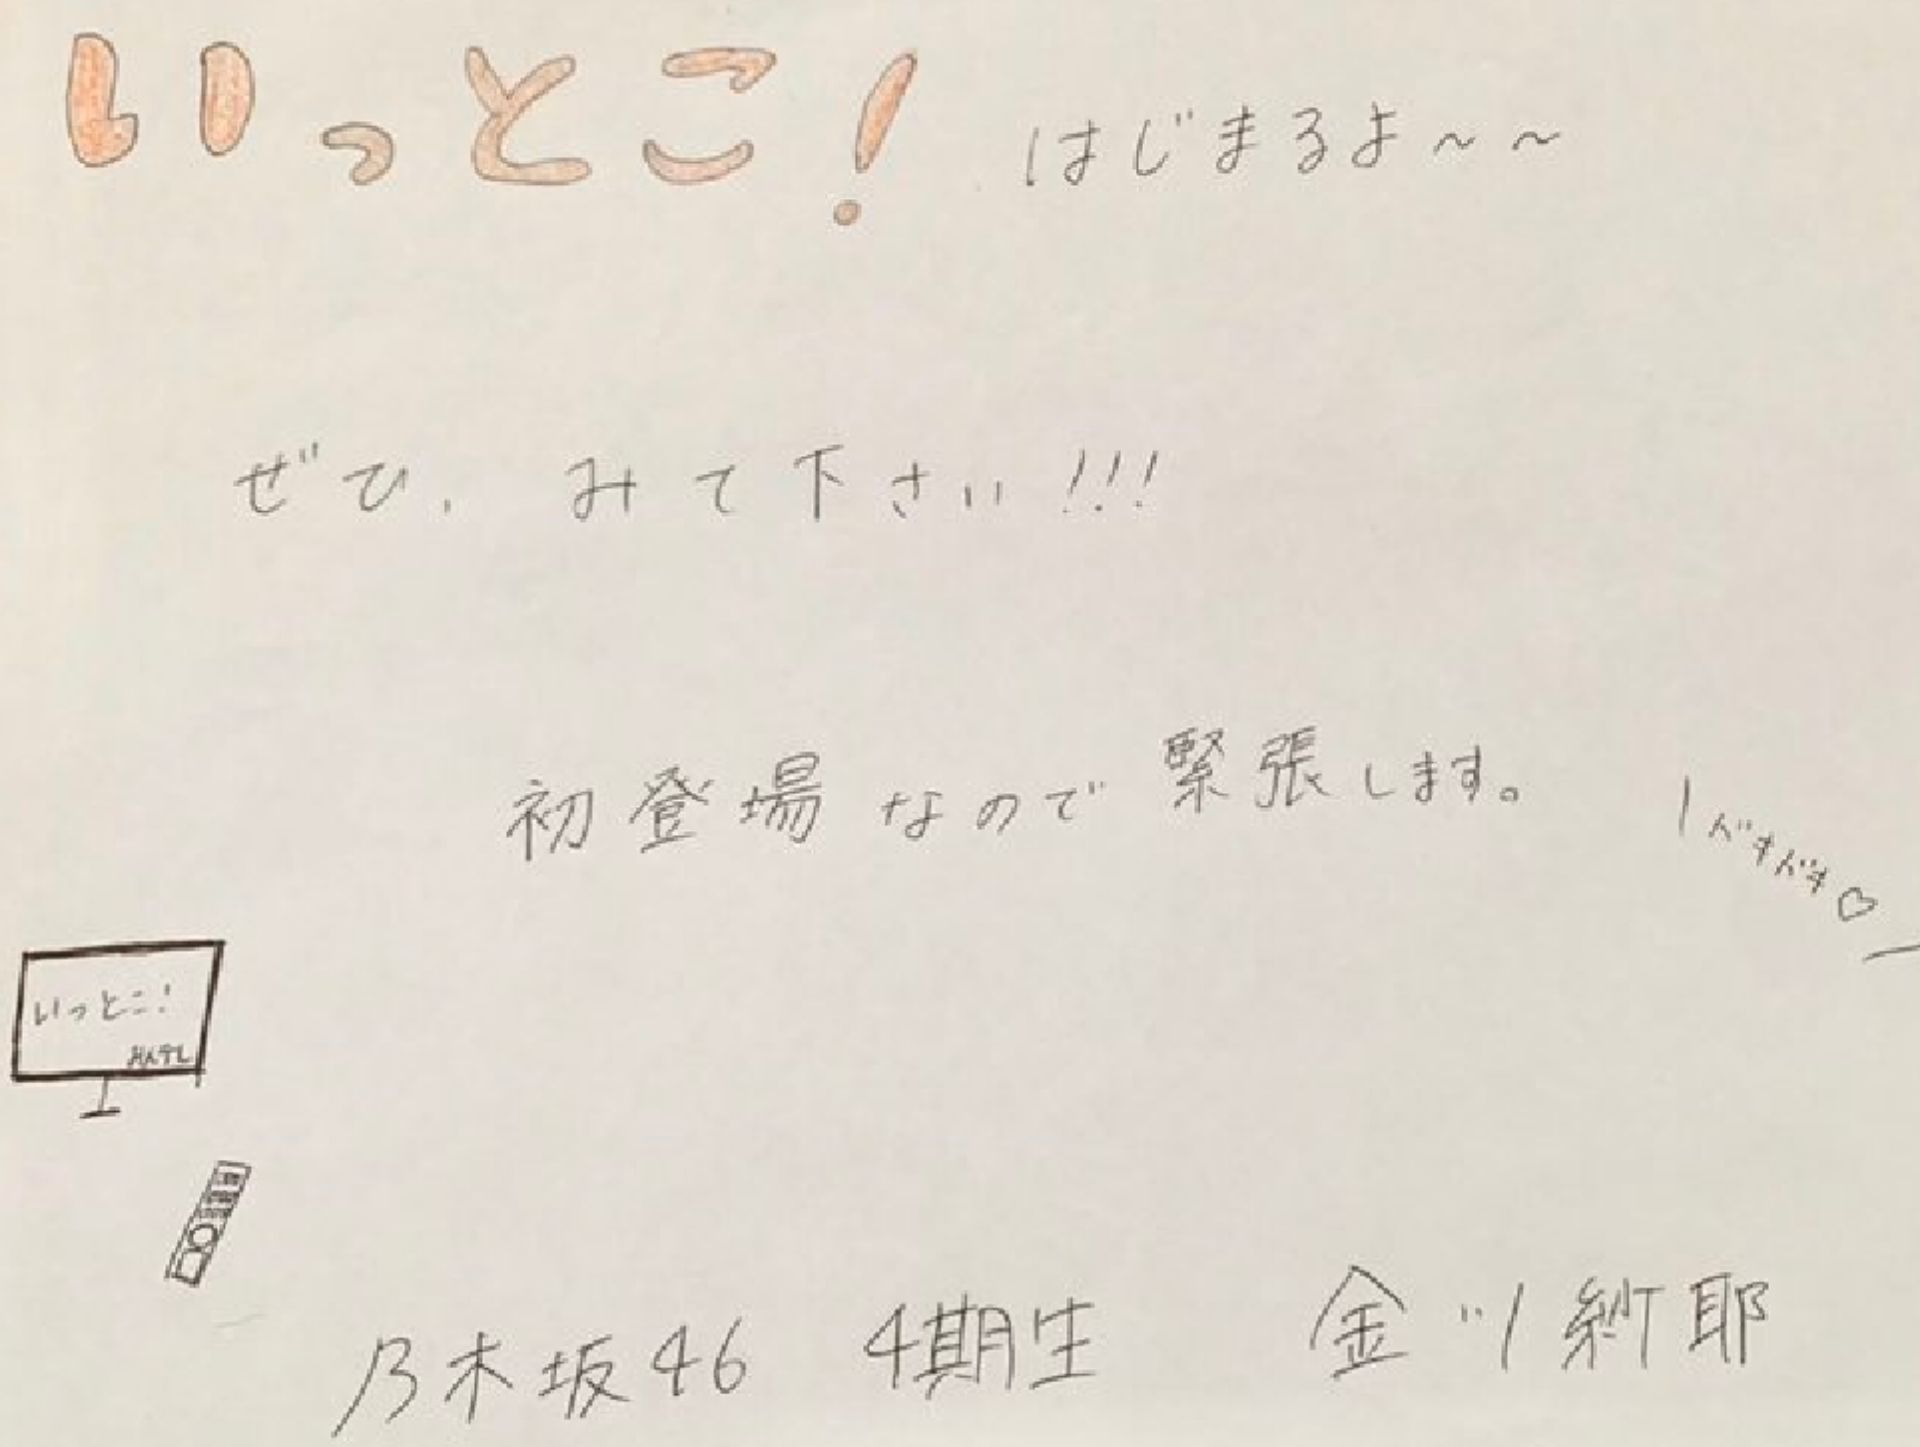 いっとこ! はじまるよ~~
ぜひ、みて下さい!!!
初登場なので緊張します。
ドキドキ♡
いっとこ!
みんテレ
乃木坂46 4期生 金川紗耶